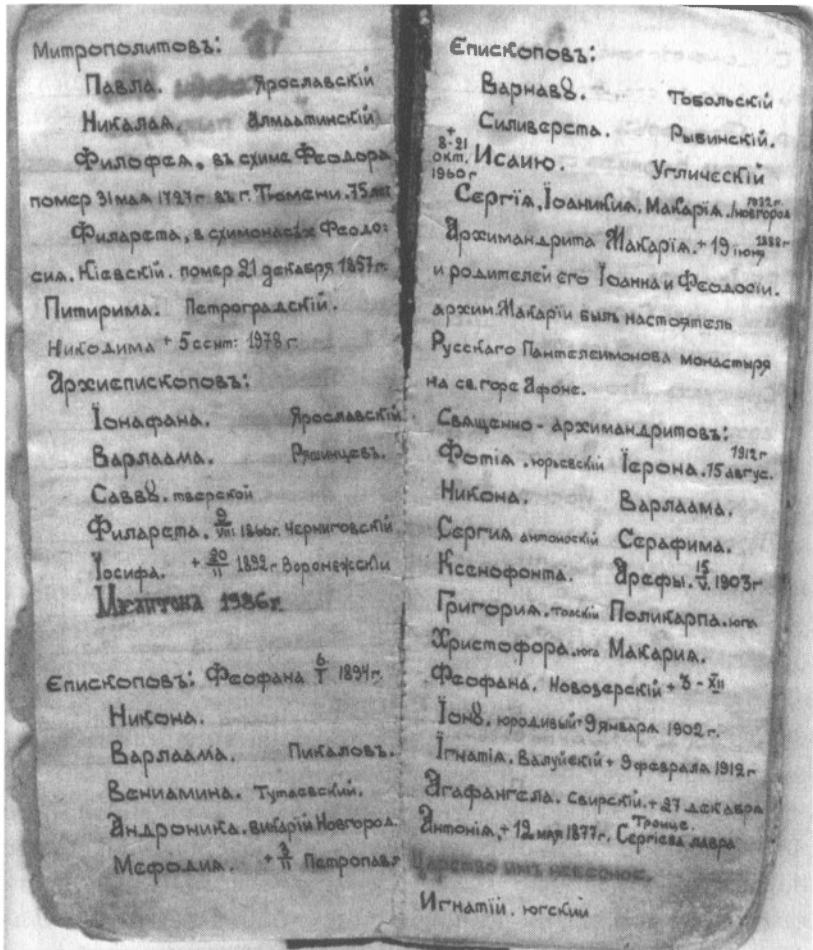 Митрополитовъ:
Павла. Ярославскїй
Николая. Алмаатинскїй
Филофея, въ схиме Феодора
помер 31 мая 1727 г. въ г. Тюмени. 75 лет
Филарета, в схимонасѣх Феодо:
сия. Кїевскїй. помер 21 декабря 1857 г.
Питирима. Петроградскїй.
Никодима + 5 сент: 1978 г.
Архиепископовъ:
Їонафана. Ярославскїй
Варлаама. Ряшинцевъ.
Савву. тверской
Филарета. 9/VIII 1866 г. Черниговскїй
Їосифа. + 20/II 1892 г. Воронежскїи
Мелитона 1986 г.
Епископовъ: Феофана 6/I 1894 г.
Никона.
Варлаама. Пикаловъ.
Вениамина. Тутаевский.
Андроника. викарїй Новгород.
Мефодия. + 3/II Петропавл
Епископовъ:
Варнаву. Тобольскїй
Силиверста. Рыбинскїй.
+ 8-21 окт. 1960 г. Исаию. Углическїй
Сергїя, Їоаникия. Макарїя. Новгород
Архимандрита Макарїя. + 19 iюня 1888 г
и родителей его Їоанна и Феодосїи.
архим. Макарїи былъ настоятель
Русскаго Пантелеимонова монастыря
на св. горе Афоне.
Священно - архимандритовъ:
Фотїя. юрьевскїй Їерона. 15 авгус. 1912 г
Никона. Варлаама.
Сергия Серафима.
Ксенофонта. Арефы. 15/V. 1903 г
Григория. толскїй Поликарпа. юга
Христофора. юга Макария.
Феофана. Новозерскїй + 3 - XII
Їону. юродивый + 9 января 1902 г.
Їгнатїя. Валуйскїй + 9 февраля 1912 г
Агафангела. Свирскїй. + 27 декабря
Антонїя, + 12 мая 1877 г. Троице. Сергїева лавра
Царство имъ небесное.
Игнатїй. югский